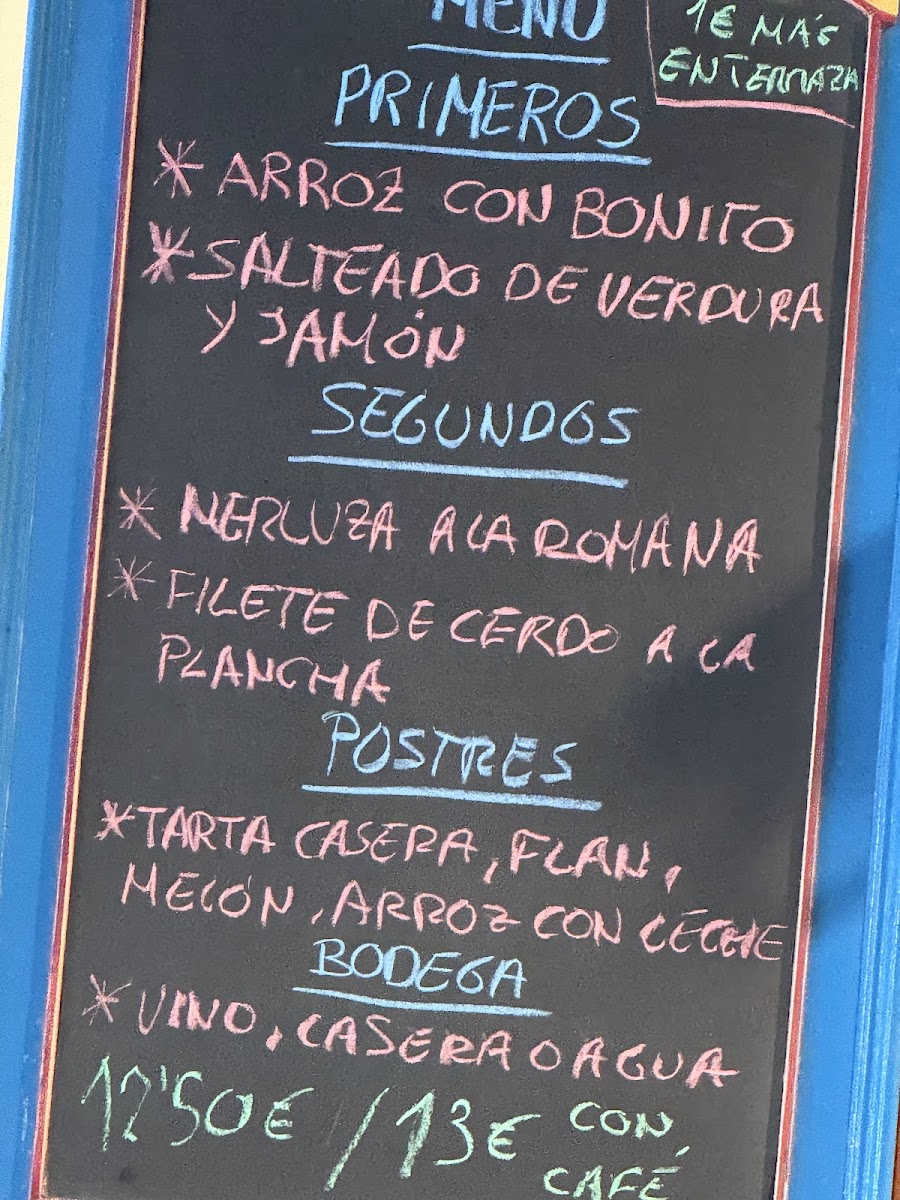 MENÚ
1€ MÁS
EN TERRAZA
PRIMEROS
* ARROZ CON BONITO
* SALTEADO DE VERDURA
Y JAMÓN
SEGUNDOS
* MERLUZA A LA ROMANA
* FILETE DE CERDO A LA
PLANCHA
POSTRES
* TARTA CASERA, FLAN,
MELÓN, ARROZ CON LECHE
BODEGA
* VINO, CASERA O AGUA
12'50€ / 13€ CON
CAFÉ